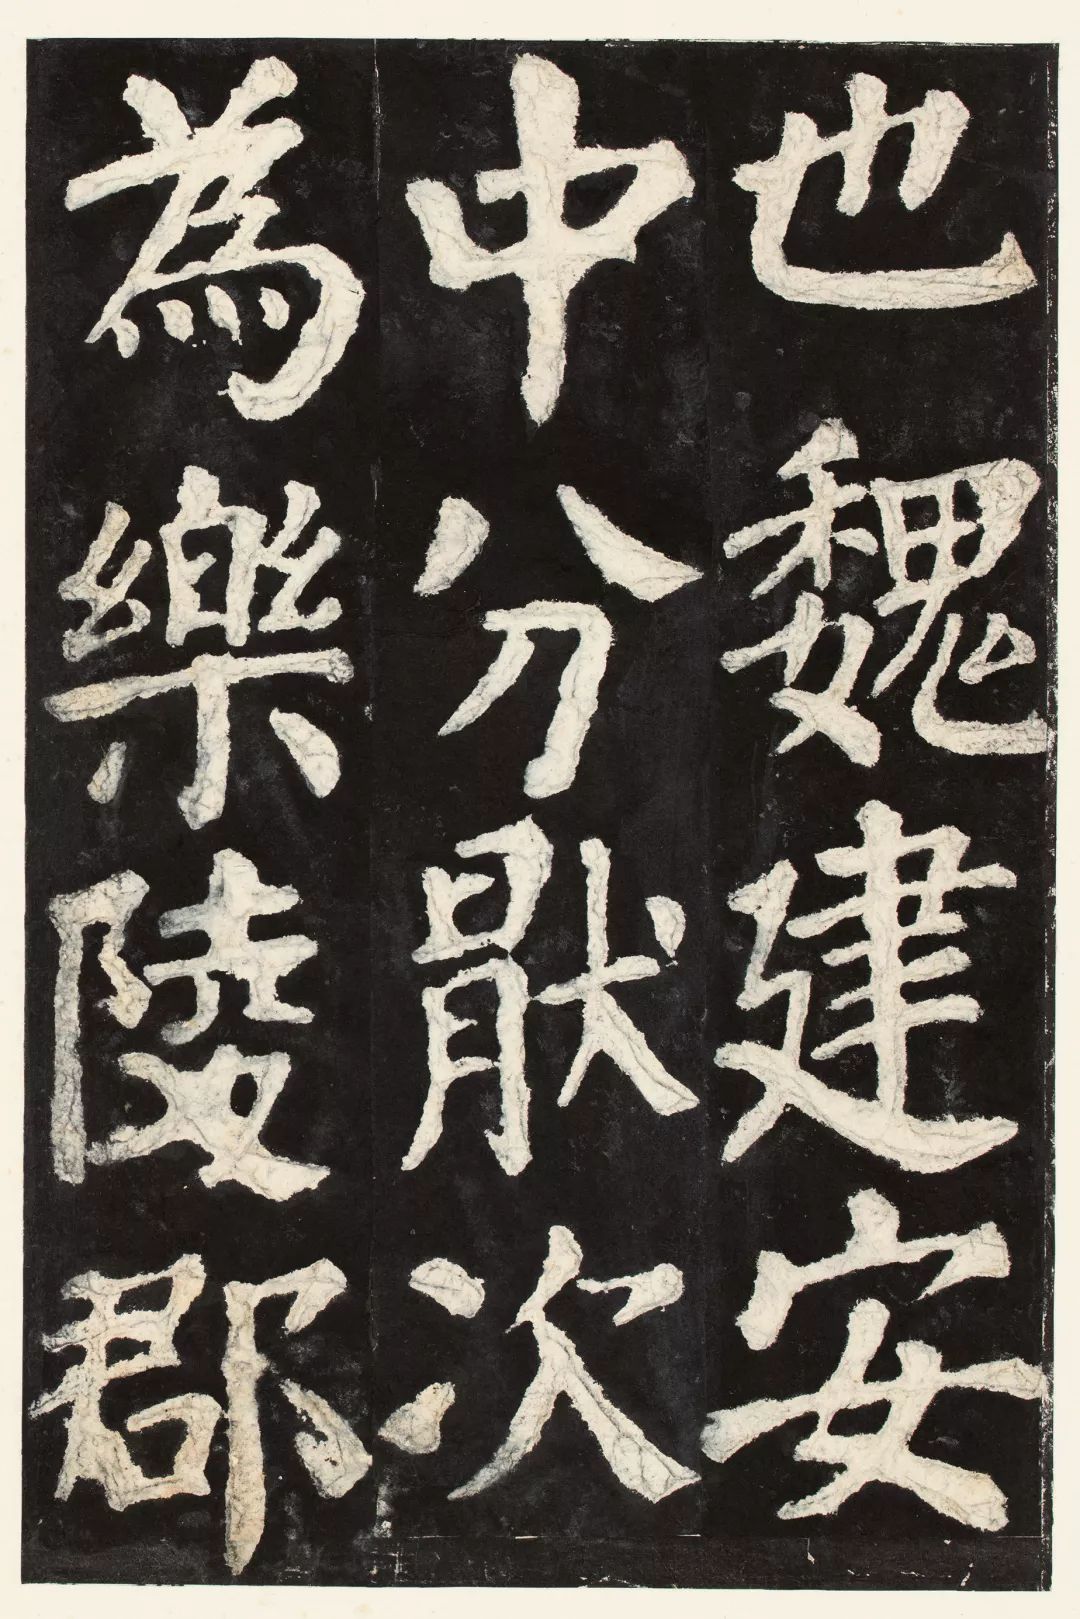 也魏建安
中分猒次
為樂陵郡